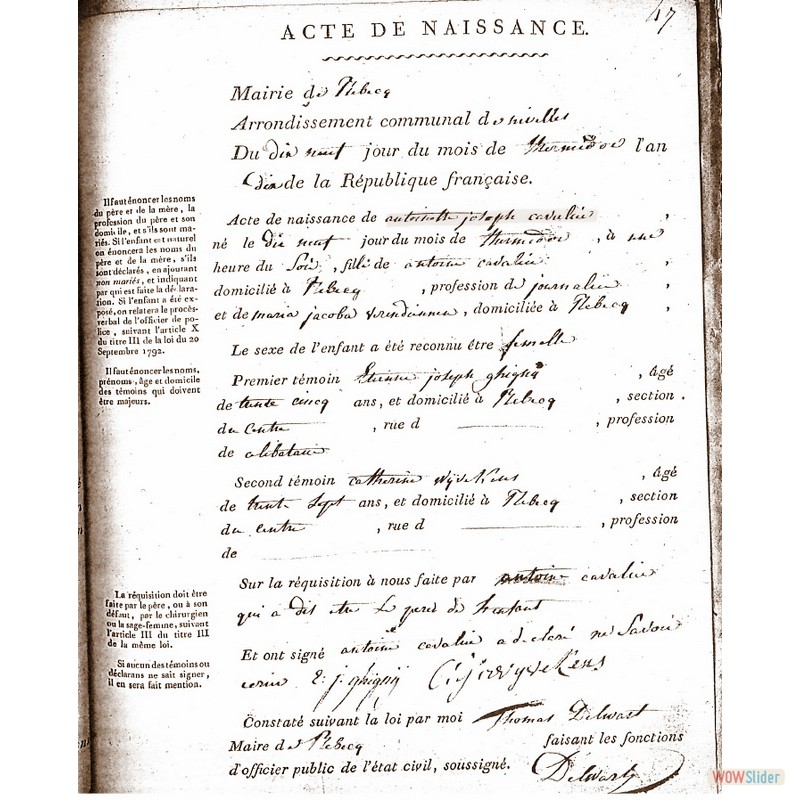 47
ACTE DE NAISSANCE.
Mairie de Rebecq
Arrondissement communal de nivelles
Du dix neuf jour du mois de thermidor l'an
dix de la République française.
Il faut énoncer les noms
du père et de la mère, la
profession du père et son
domicile, et s'ils sont ma-
riés. Si l'enfant est naturel
on énoncera les noms du
père et de la mère, s'ils
sont déclarés, en ajoutant
non mariés, et indiquant
par qui est faite la décla-
ration. Si l'enfant a été ex-
posé, on relatera le procès-
verbal de l'officier de po-
lice, suivant l'article X
du titre III de la loi du 20
Septembre 1792.
Il faut énoncer les noms,
prénoms, âge et domicile
des témoins qui doivent
être majeurs.
Acte de naissance de antoinette joseph cavalier,
né le dix neuf jour du mois de thermidor, à une
heure du soir, fille de antoine cavalier
domicilié à Rebecq, profession de journalier,
et de maria jacoba, domiciliée à Rebecq,
Le sexe de l'enfant a été reconnu être femelle
Premier témoin Etienne joseph ghigny, âgé
de trente cincq ans, et domicilié à Rebecq, section
du centre, rue d, profession
de
Second témoin catherine wyvekens, âgé
de trente sept ans, et domicilié à Rebecq, section
du centre, rue d, profession
de
La réquisition doit être
faite par le père, ou à son
défaut, par le chirurgien
ou la sage-femme, suivant
l'article III du titre III
de la même loi.
Si aucun des témoins ou
déclarans ne sait signer,
il en sera fait mention.
Sur la réquisition à nous faite par antoine cavalier
qui a dit être le père de l'enfant
Et ont signé antoine cavalier a declaré ne savoir
ecrire E: j. ghigny C:j: wyvekens
Constaté suivant la loi par moi Thomas Delwart
Maire de Rebecq faisant les fonctions
d'officier public de l'état civil, soussigné. Delwart
WOWSlider